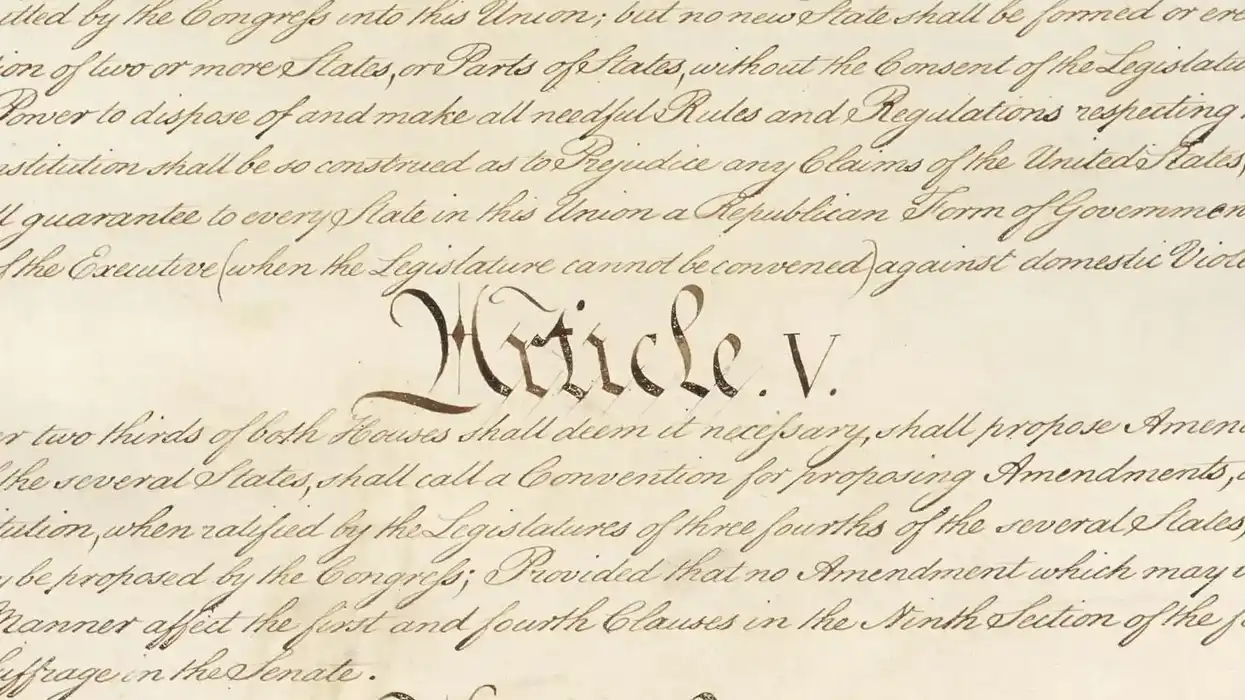 itted by the Congress into this Union; but no new State shall be formed or ere
ion of two or more States, or Parts of States, without the Consent of the Legislatu
Power to dispose of and make all needful Rules and Regulations respecting
nstitution shall be so construed as to Prejudice any Claims of the United States,
ll guarantee to every State in this Union a Republican Form of Governmen
f the Executive (when the Legislature cannot be convened) against domestic Viole
Article. V.
er two thirds of both Houses shall deem it necessary, shall propose Amen
the several States, shall call a Convention for proposing Amendments,
tution, when ratified by the Legislatures of three fourths of the several States,
y be proposed by the Congress; Provided that no Amendment which may
Manner affect the first and fourth Clauses in the Ninth Section of the f
uffrage in the Senate.